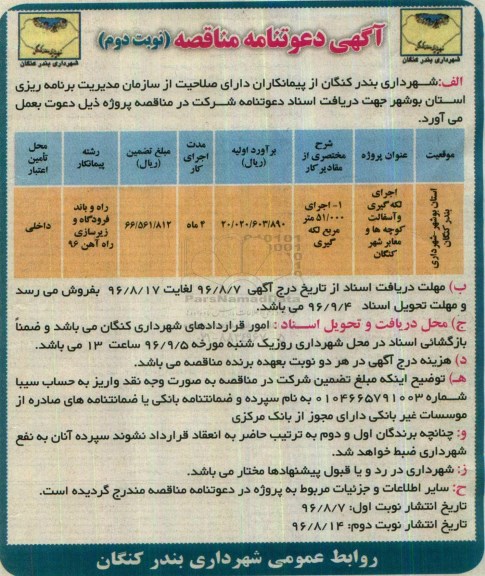 آگهی دعوتنامه مناقصه (نوبت دوم)
شهرداری بندر کنگان
شهرداری بندر کنگان
الف: شهرداری بندر کنگان از پیمانکاران دارای صلاحیت از سازمان مدیریت برنامه ریزی
استان بوشهر جهت دریافت اسناد دعوتنامه شرکت در مناقصه پروژه ذیل دعوت بعمل
می آورد.
موقعیت
عنوان پروژه
شرح مختصری از مقادیر کار
برآورد اولیه (ریال)
مدت اجرای کار
مبلغ تضمین (ریال)
رشته پیمانکار
محل تأمین اعتبار
استان بوشهر-شهرداری بندر کنگان
اجرای لکه گیری وآسفالت کوچه ها و معابر شهر کنگان
۱- اجرای ۵۱/۰۰۰ متر مربع لکه گیری
۲۰/۰۲۰/۶۰۳/۸۹۰
۴ ماه
۶۶/۵۶۱/۸۱۲
راه و باند فرودگاه و زیرسازی راه آهن ۹۶
داخلی
ب) مهلت دریافت اسناد از تاریخ درج آگهی ۹۶/۸/۷ لغایت ۹۶/۸/۱۷ بفروش می رسد
و مهلت تحویل اسناد ۹۶/۹/۴ می باشد.
ParsNamadData
ج) محل دریافت و تحویل اسناد : امور قراردادهای شهرداری کنگان می باشد و ضمناً
بازگشائی اسناد در محل شهرداری روزیک شنبه مورخه ۹۶/۹/۵ ساعت ۱۳ می باشد.
د) هزینه درج آگهی در هر دو نوبت بعهده برنده مناقصه می باشد.
هـ) توضیح اینکه مبلغ تضمین شرکت در مناقصه به صورت وجه نقد واریز به حساب سیبا
شماره ۰۱۰۴۶۶۵۷۹۱۰۰۳ به نام سپرده و ضمانتنامه بانکی یا ضمانتنامه های صادره از
موسسات غیر بانکی دارای مجوز از بانک مرکزی
و: چنانچه برندگان اول و دوم به ترتیب حاضر به انعقاد قرارداد نشوند سپرده آنان به نفع
شهرداری ضبط خواهد شد.
ز: شهرداری در رد و یا قبول پیشنهادها مختار می باشد.
ح: سایر اطلاعات و جزئیات مربوط به پروژه در دعوتنامه مناقصه مندرج گردیده است.
تاریخ انتشار نوبت اول: ۹۶/۸/۷
تاریخ انتشار نوبت دوم: ۹۶/۸/۱۴
روابط عمومی شهرداری بندر کنگان